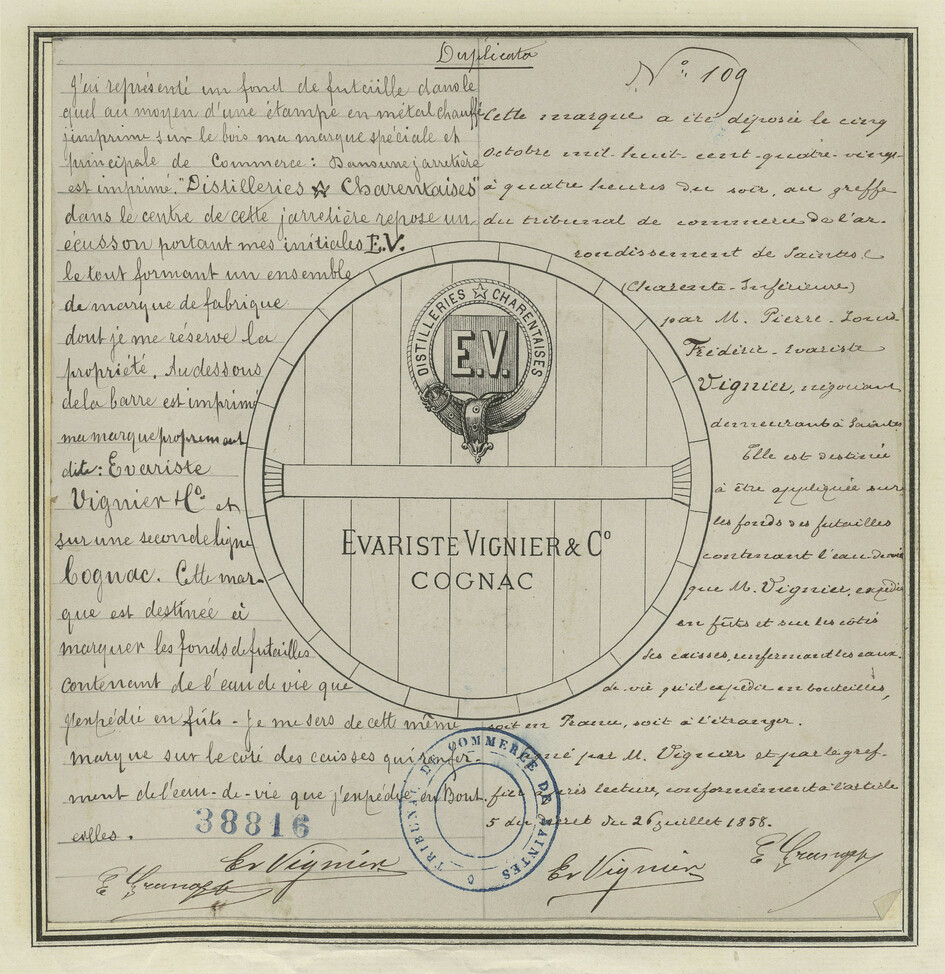 Duplicata
J'ai représenté un fond de futaille dans le
quel au moyen d'une étampe en métal chauffé
j'imprime sur le bois ma marque spéciale et
principale de Commerce : Dans une jarretière
est imprimé. "Distilleries ☆ Charentaises"
dans le centre de cette jarretière repose un
écusson portant mes initiales E.V.
le tout formant un ensemble
de marque de fabrique
dont je me réserve la
propriété. Au dessous
de la barre est imprimé
ma marque proprement
dite : Evariste
Vignier & Cº et
sur une seconde ligne
Cognac. Cette mar-
que est destinée à
marquer les fonds de futailles
contenant de l'eau de vie que
j'expédie en fûts - Je me sers de cette même
marque sur le côté des caisses qui renfer-
ment de l'eau-de-vie que j'expédie en Bout
eilles.
38816
Ev Vignier
Nº 109
Cette marque a été déposée le cinq
Octobre mil-huit-cent-quatre-vingt-
à quatre heures du soir, au greffe
du tribunal de commerce de l'ar-
rondissement de Saintes
(Charente-Inférieure)
par M. Pierre-Louis
Frédéric-Evariste
Vignier, négociant
demeurant à Saintes
Elle est destinée
à être appliquée sur
les fonds des futailles
contenant l'eau de vie
que M. Vignier, expédie
en fûts et sur les côtés
des caisses, renfermant les eaux-
de-vie qu'il expédie en bouteilles,
soit en France, soit à l'étranger.
né par M. Vignier et par le gref-
fier après lecture, conformément à l'article
5 du décret du 26 juillet 1858.
Ev Vignier
DISTILLERIES ☆ CHARENTAISES
E.V.
EVARISTE VIGNIER & Cº
COGNAC
TRIBUNAL DE COMMERCE DE SAINTES